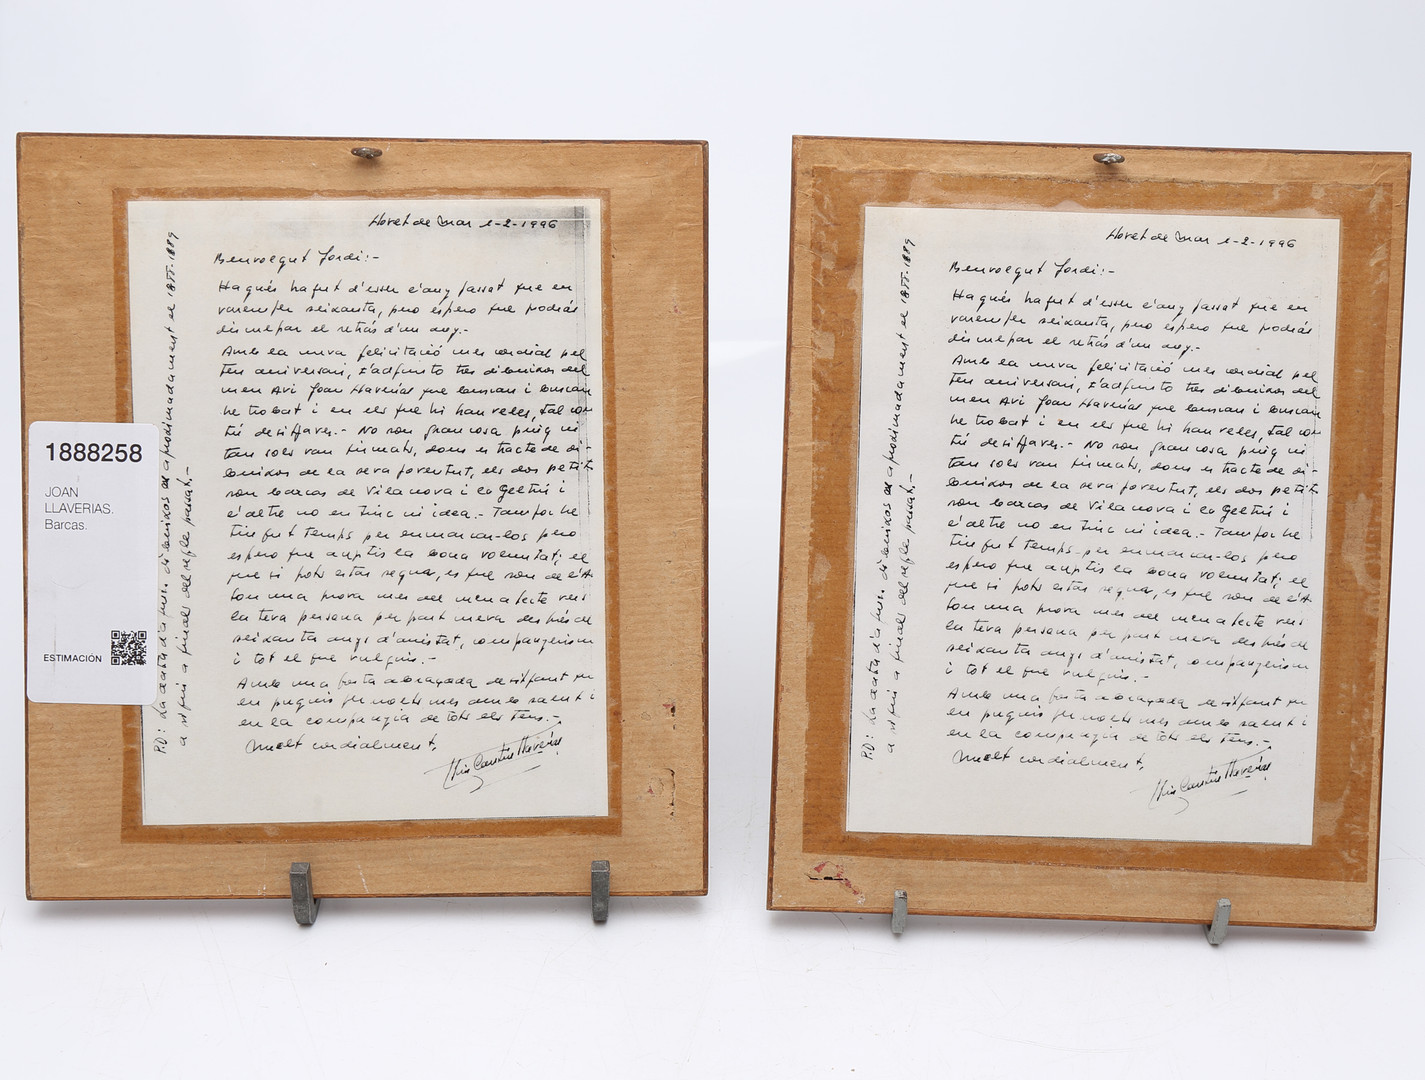 1888258
JOAN
LLAVERIAS.
Barcas.
ESTIMACIÓN
Lloret de Mar 1-2-1996
Benvolgut Jordi:-
Hagués hagut d'esser l'any passat que en
varem fer seixanta, pero espero que podrás
disculpar el retrás d'un any.-
Amb la meva felicitació mes cordial pel
teu aniversari, t'adjunto tres dibuixos del
meu Avi Joan Llaverias que buscan i buscan
he trobat i en els que hi han veles, tal com
tú desitjaves.- No son gran cosa puig ni
tan sols van firmats, doncs es tracte de di-
buixos de la seva joventut, els dos petits
son barcas de Vilanova i la Geltrú i
l'altre no en tinc ni idea.- Tampoc he
tingut temps per enmarcar-los pero
espero que aceptis la bona voluntat; el
que si pots estar segur, es que son de ell
son una prova mes del meu afecte vers
la teva persona per part meva després de
seixanta anys d'amistat, companyerism
i tot el que vulguis.-
Amb una forta abraçada desitjant que
en puguis fer molts mes amb salut i
en la companyia de tots els teus.-
Molt cordialment,
Lluis Llaverias
P.D: La data d'aquests dibuixos es aproximadament el 1888-1889
o sigui a finals del segle passat.-
Lloret de Mar 1-2-1996
Benvolgut Jordi:-
Hagués hagut d'esser l'any passat que en
varem fer seixanta, pero espero que podrás
disculpar el retrás d'un any.-
Amb la meva felicitació mes cordial pel
teu aniversari, t'adjunto tres dibuixos del
meu Avi Joan Llaverias que buscan i buscan
he trobat i en els que hi han veles, tal com
tú desitjaves.- No son gran cosa puig ni
tan sols van firmats, doncs es tracte de di-
buixos de la seva joventut, els dos petits
son barcas de Vilanova i la Geltrú i
l'altre no en tinc ni idea.- Tampoc he
tingut temps per enmarcar-los pero
espero que aceptis la bona voluntat; el
que si pots estar segur, es que son de ell
son una prova mes del meu afecte vers
la teva persona per part meva després de
seixanta anys d'amistat, companyerism
i tot el que vulguis.-
Amb una forta abraçada desitjant que
en puguis fer molts mes amb salut i
en la companyia de tots els teus.-
Molt cordialment,
Lluis Llaverias
P.D: La data d'aquests dibuixos es aproximadament el 1888-1889
o sigui a finals del segle passat.-